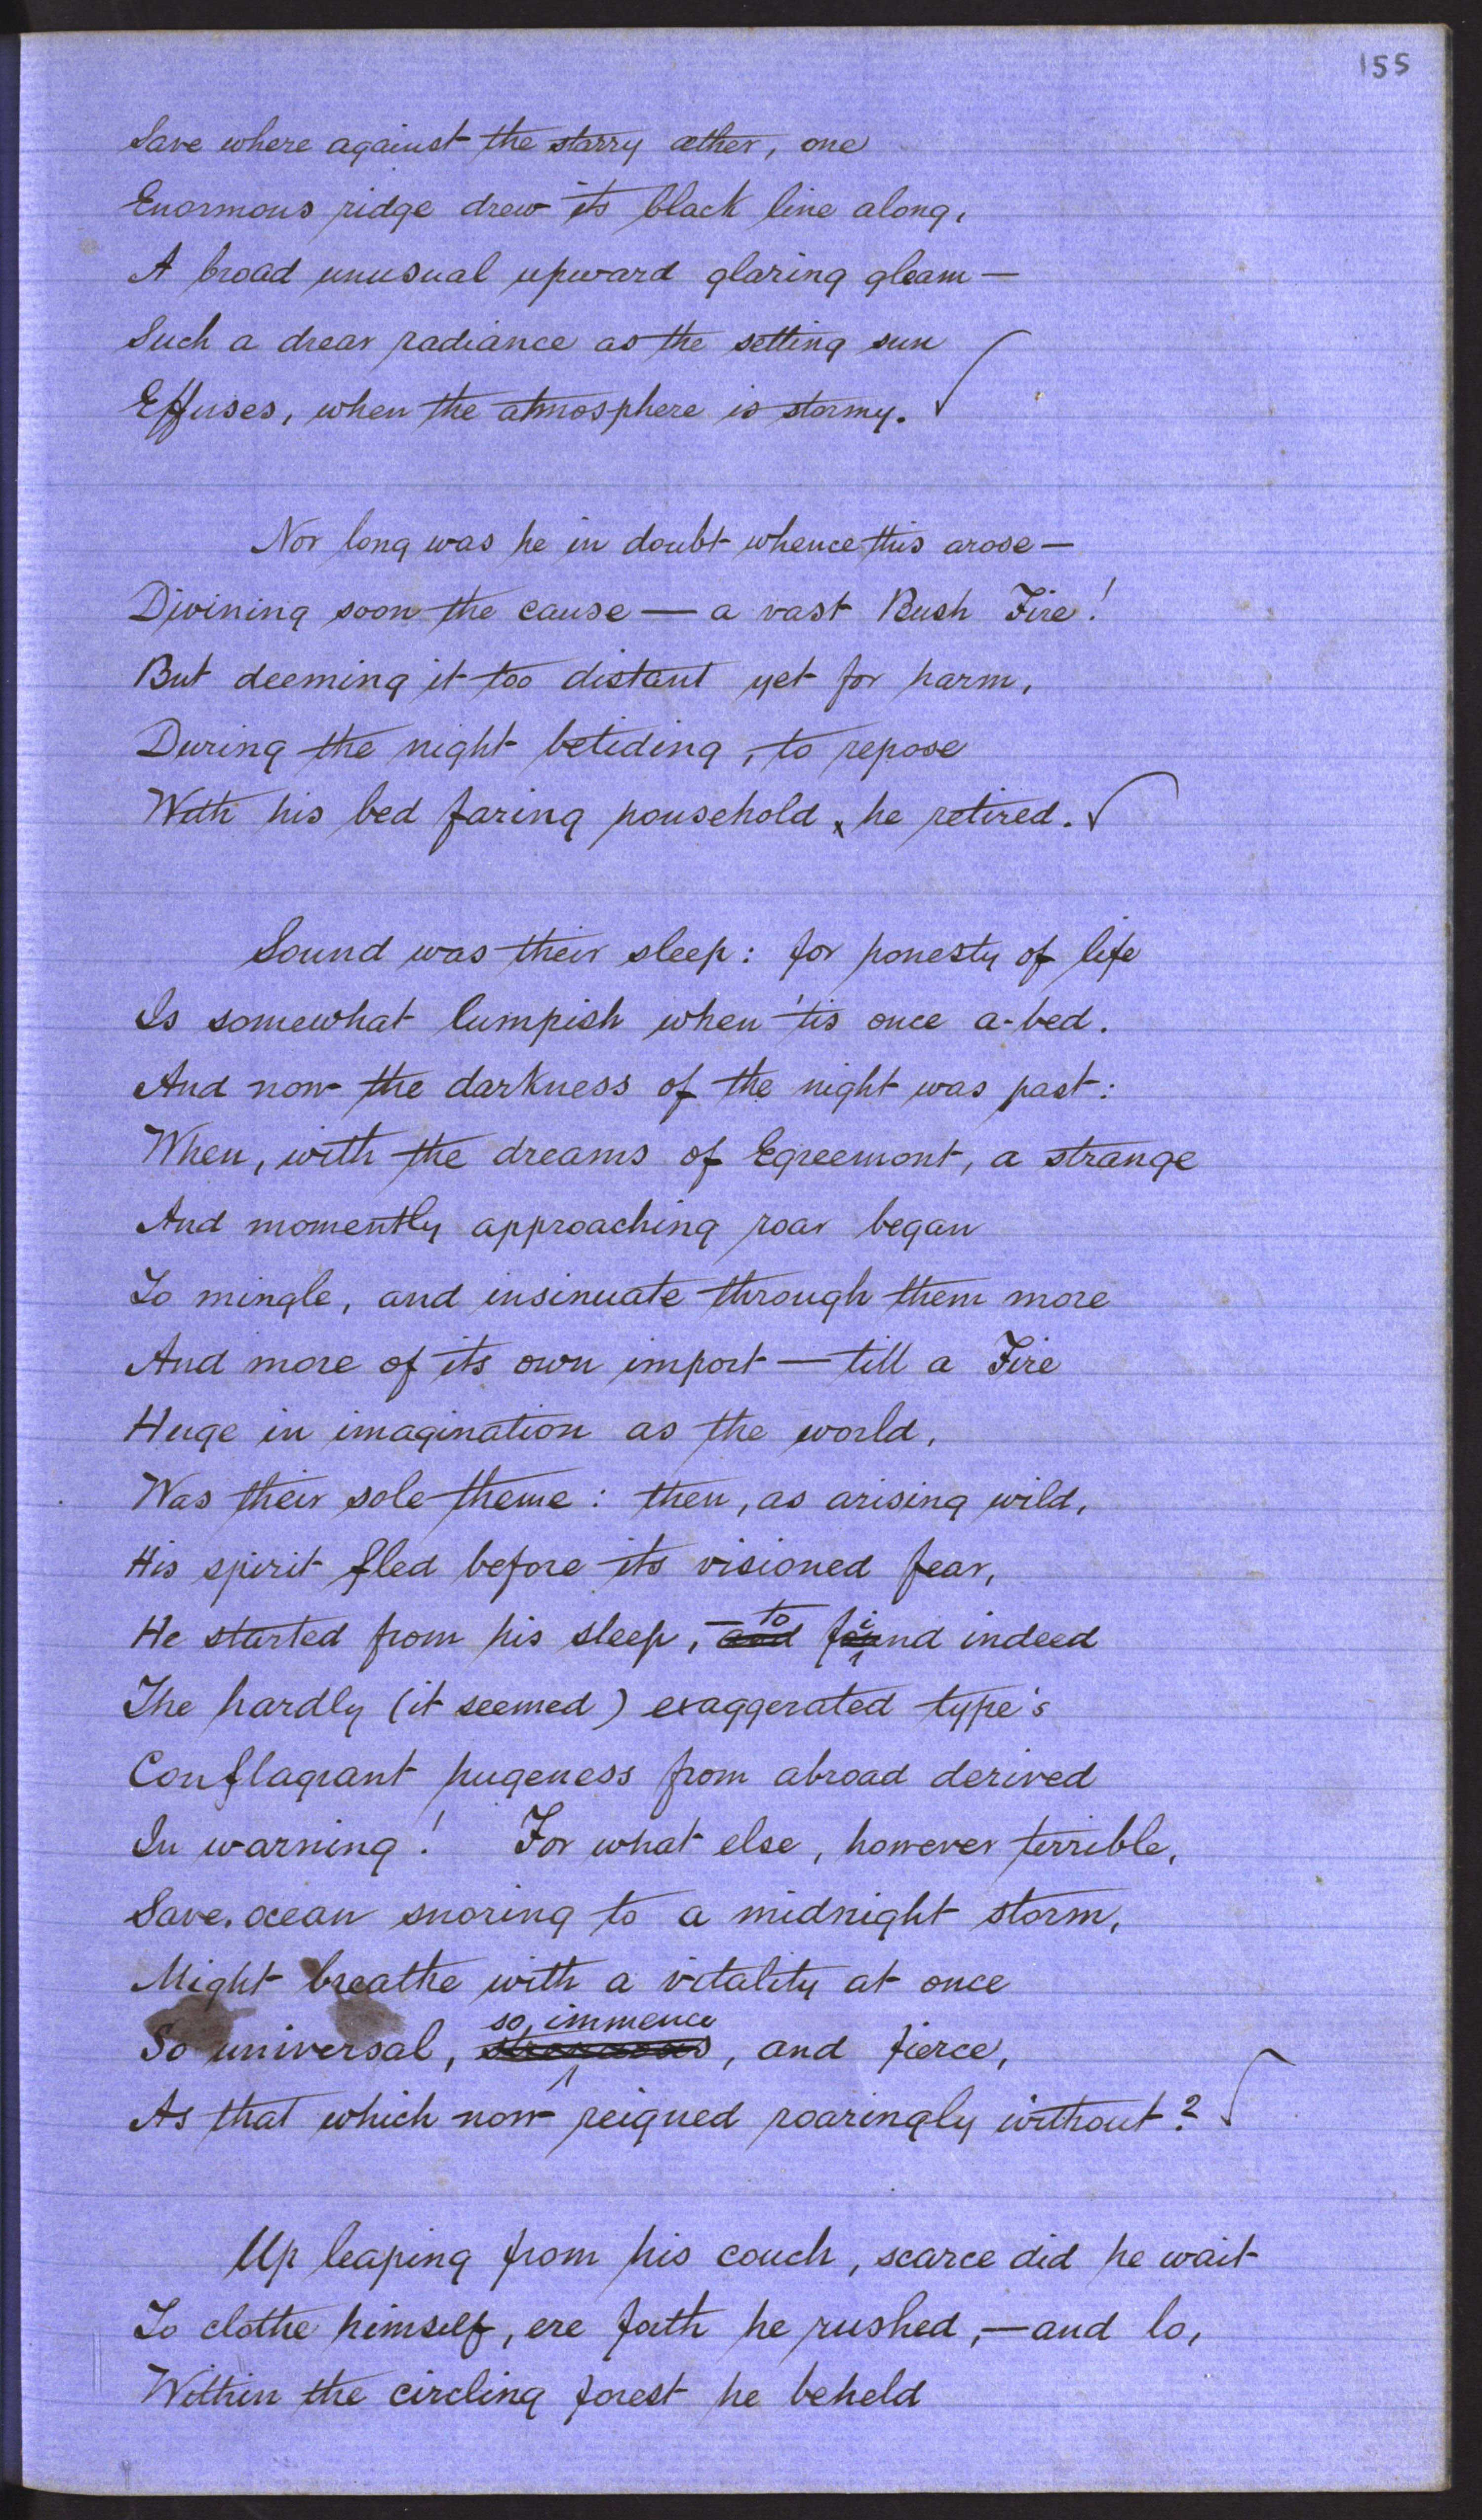 155
Save where against the starry æther, one
Enormous ridge drew its black line along,
A broad unusual upward glaring gleam —
Such a drear radiance as the setting sun
Effuses, when the atmosphere is stormy.
Nor long was he in doubt whence this arose —
Divining soon the cause — a vast Bush Fire!
But deeming it too distant yet for harm,
During the night betiding, to repose
With his bed faring household, he retired.
Sound was their sleep: for honesty of life
Is somewhat lumpish when 'tis once a-bed.
And now the darkness of the night was past:
When, with the dreams of Egreemont, a strange
And momently approaching roar began
To mingle, and insinuate through them more
And more of its own import — till a Fire
Huge in imagination as the world,
Was their sole theme: then, as arising wild,
His spirit fled before its visioned fear,
He started from his sleep, and to find indeed
The hardly (it seemed) exaggerated type's
Conflagrant hugeness from abroad derived
In warning! For what else, however terrible,
Save, ocean snoring to a midnight storm,
Might breathe with a vitality at once
so immence
So universal, strenuous, and fierce,
As that which now reigned roaringly without?
Up leaping from his couch, scarce did he wait
To clothe himself, ere forth he rushed, — and lo,
Within the circling forest he beheld